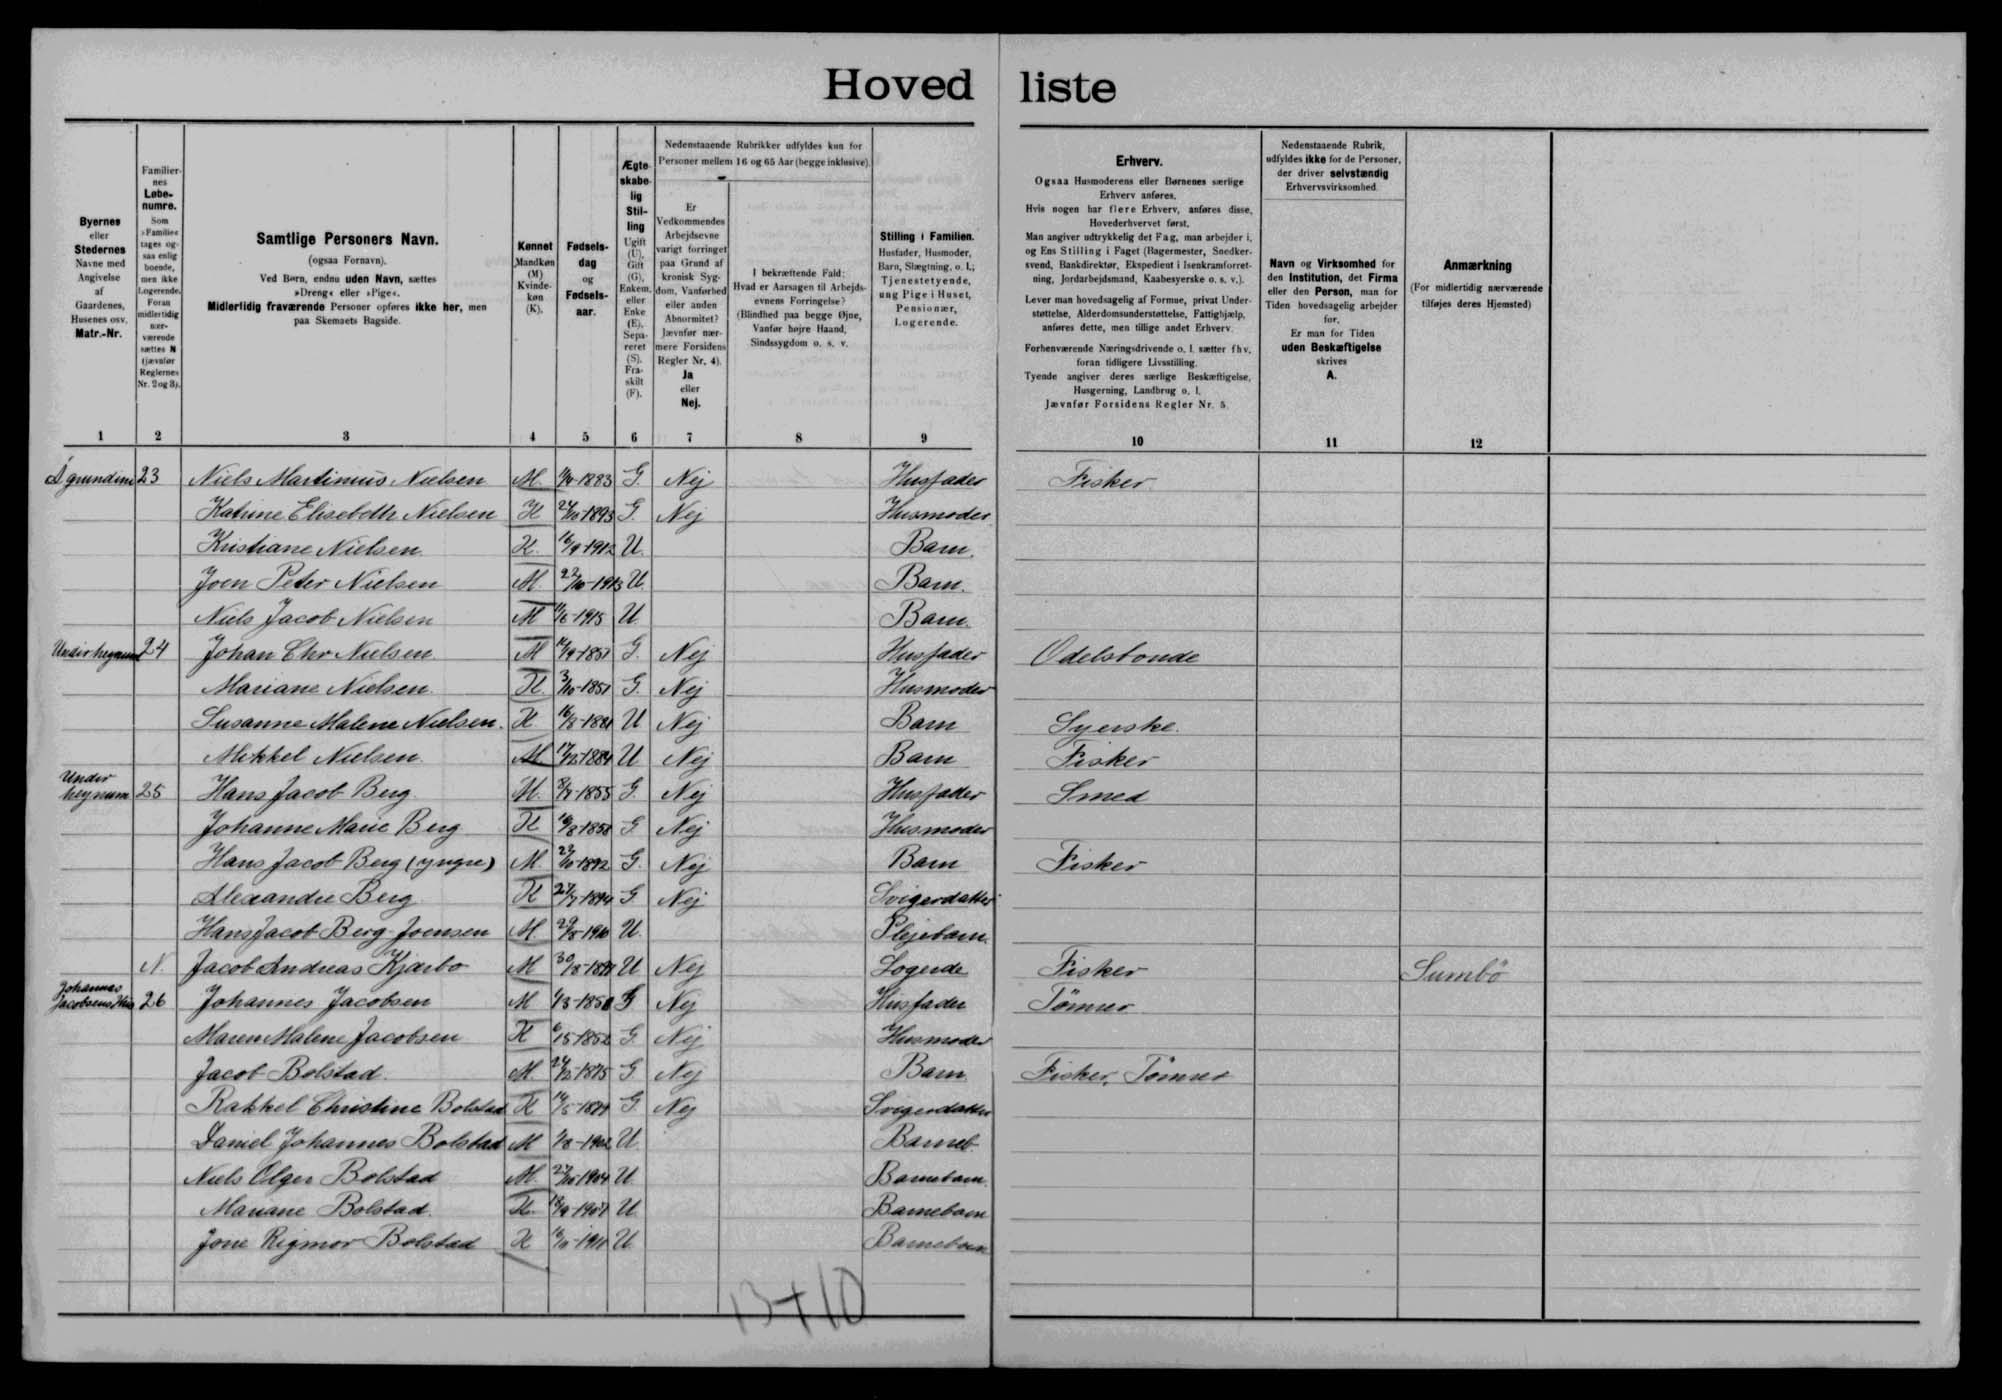 Hoved liste
Byernes
eller
Stedernes
Navne med
Angivelse
af
Gaardenes,
Husenes osv.
Matr.-Nr.
Familier-
nes
Løbe-
numre.
Som
»Familie«
tages og-
saa enlig
boende,
men ikke
Logerende.
Foran
midlertidig
nær-
værende
sættes N
(jævnfør
Reglernes
Nr. 2 og 3).
Samtlige Personers Navn.
(ogsaa Fornavn).
Ved Børn, endnu uden Navn, sættes
»Dreng« eller »Pige«.
Midlertidig fraværende Personer opføres ikke her, men
paa Skemaets Bagside.
Kønnet
Mandkøn
(M)
Kvinde-
køn
(K).
Fødsels-
dag
og
Fødsels-
aar.
Ægte-
skabe-
lig
Stil-
ling
Ugift
(U),
Gift
(G),
Enkem.
eller
Enke
(E),
Sepa-
reret
(S).
Fra-
skilt
(F).
Nedenstaaende Rubrikker udfyldes kun for
Personer mellem 16 og 65 Aar (begge inklusive).
Er
Vedkommendes
Arbejdsevne
varigt forringet
paa Grund af
kronisk Syg-
dom, Vanførhed
eller anden
Abnormitet?
Jævnfør nær-
mere Forsidens
Regler Nr. 4).
Ja
eller
Nej.
I bekræftende Fald:
Hvad er Aarsagen til Arbejds-
evnens Forringelse?
(Blindhed paa begge Øjne,
Vanfør højre Haand,
Sindssygdom o. s. v.
Stilling i Familien.
Husfader, Husmoder,
Barn, Slægtning, o. l.;
Tjenestetyende,
ung Pige i Huset,
Pensionær,
Logerende.
Erhverv.
Ogsaa Husmoderens eller Børnenes særlige
Erhverv anføres.
Hvis nogen har flere Erhverv, anføres disse,
Hovederhvervet først.
Man angiver udtrykkelig det Fag, man arbejder i,
og Ens Stilling i Faget (Bagermester, Snedker-
svend, Bankdirektør, Ekspedient i Isenkramforret-
ning, Jordarbejdsmand, Kaabesyerske o. s. v.).
Lever man hovedsagelig af Formue, privat Under-
støttelse, Alderdomsunderstøttelse, Fattighjælp,
anføres dette, men tillige andet Erhverv.
Forhenværende Næringsdrivende o. l. sætter fhv.
foran tidligere Livsstilling.
Tyende angiver deres særlige Beskæftigelse,
Husgerning, Landbrug o. l.
Jævnfør Forsidens Regler Nr. 5.
Nedenstaaende Rubrik,
udfyldes ikke for de Personer,
der driver selvstændig
Erhvervsvirksomhed.
Navn og Virksomhed for
den Institution, det Firma
eller den Person, man for
Tiden hovedsagelig arbejder
for.
Er man for Tiden
uden Beskæftigelse
skrives
A.
Anmærkning
(For midlertidig nærværende
tilføjes deres Hjemsted)
1 2 3 4 5 6 7 8 9 10 11 12
Á grundini 23 Niels Martinus Nielsen M. 1883 G. Nej Husfader Fisker
Katrine Elisebeth Nielsen K 1893 G. Nej Husmoder
Kristiane Nielsen K. 16/9-1912 U Barn.
Joen Peter Nielsen M 22/10-1913 U Barn.
Niels Jacob Nielsen M 1915 U Barn.
24 Johan Chr Nielsen M 1851 G. Nej Husfader Odelsbonde
Mariane Nielsen. K. 3/10-1851 G. Nej Husmoder
Susanne Malene Nielsen. K. 16/8-1881 U Nej Barn Syerske.
Mikkel Nielsen. M 17/12-1884 U Nej Barn Fisker
Undir
heygnum 25 Hans Jacob Berg. M. 1855 G. Nej Husfader Smed
Johanne Marie Berg K 1858 G Nej Husmoder
Hans Jacob Berg (yngre) M. 1892 G. Nej Barn Fisker
Alexandre Berg K 1894 G Nej Svigerdatter
Hans Jacob Berg Joensen M. 29/8-1910 U. Plejebarn.
N. Jacob Andreas Kjærbo M 30/8- U Nej Logerde Fisker Sumbö
Johannes
Jacobsens Hus 26 Johannes Jacobsen M G Nej Husfader Tömrer
Maren Malene Jacobsen K 1852 G. Nej Husmoder
Jacob Bolstad. M. 24/12-1875 G Nej Barn Fisker, Tömrer
Rakkel Christine Bolstad K G Nej Svigerdatter
Daniel Johannes Bolstad M 1902 U. Barneb
Niels Olger Bolstad M. 27/10-1904 U Barnebarn.
Mariane Bolstad. K. 18/9-1907 U Barnebarn
Jone Rigmor Bolstad K 1911 U Barnebarn
13+10